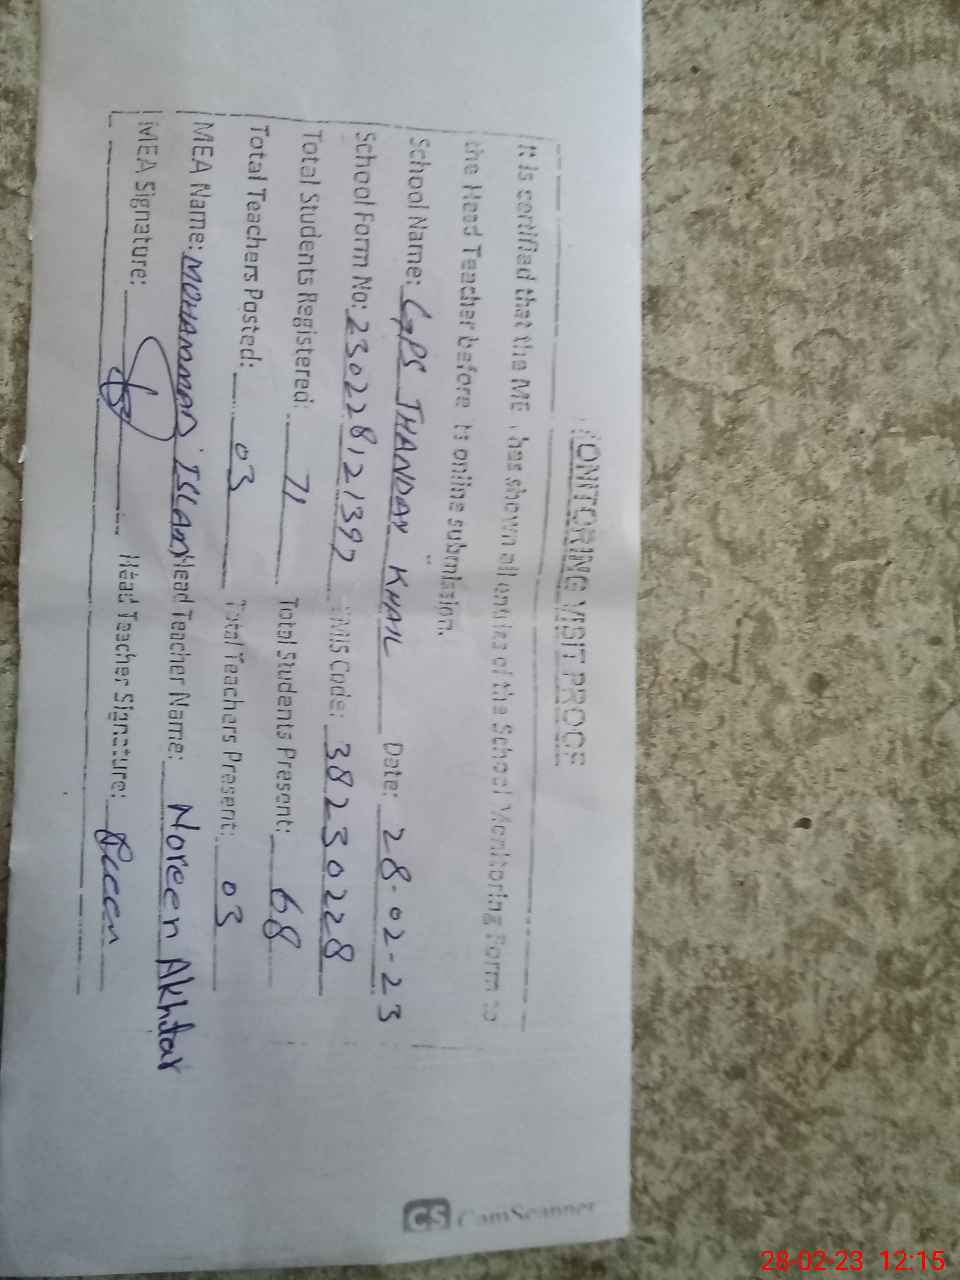 MONITORING VISIT PROOF
It is certified that the ME has shown all entries of the School Monitoring Form to
the Head Teacher before its online submission.
School Name: GPS THANDAY KHAIL Date: 28-02-23
School Form No: 230228121397 EMIS Code: 38230228
Total Students Registered: 71 Total Students Present: 68
Total Teachers Posted: 03 Total Teachers Present: 03
MEA Name: MOHAMMAD ISLAM Head Teacher Name: Noreen Akhtar
MEA Signature: Head Teacher Signature:
CS CamScanner
28-02-23 12:15